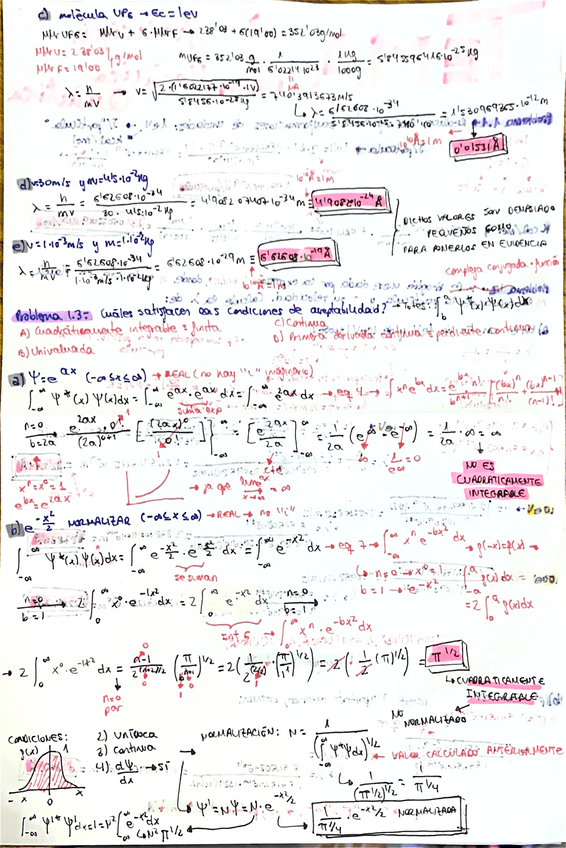 c) molécula UF6 → Ec = 1eV
MM UF6 = MM U + 6·MM F → 238'03 + 6(19'00) = 352'03 g/mol
MM U = 238'03 g/mol
MM F = 19'00
m UF6 = 352'03 g/mol · 1/6'02214·10^23 · 1kg/1000g = 5'845596416·10^-25 kg
λ = h/mV → v = √(2·(1'6022177·10^-19·1V)/5'8456·10^-25 kg) = 740'3913673 m/s
↳ λ = 6'62608·10^-34/5'8456·10^-25·740'40 = 1'530969365·10^-12 m
10^10 Å = 1m
0'01531 Å
d) v=30m/s y m=4'5·10^-2 kg
λ = h/mv = 6'62608·10^-34/30·4'5·10^-2 kg = 4'908207407·10^-34 m = 4'9082·10^-24 Å
e) v=1·10^-3 m/s y m=1·10^-2 kg
λ = h/mv = 6'62608·10^-34/1·10^-3 m/s · 1·10^-2 kg = 6'62608·10^-29 m = 6'62608·10^-19 Å
DICHOS VALORES SON DEMASIADO PEQUEÑOS COMO PARA PONERLOS EN EVIDENCIA
compleja conjugada · función
Problema 1.3: Cuáles satisfacen las condiciones de aceptabilidad? → Totes: ∫ Ψ*(x)·Ψ(x)dx
A) Cuadráticamente integrable = finita
C) Continua
B) Univaluada
D) Primera derivada continua = pendiente continua
a) Ψ = e^ax (-∞ ≤ x ≤ ∞) → REAL (no hay "i" imaginario)
∫ Ψ*(x)Ψ(x)dx = ∫ e^ax · e^ax dx = ∫ e^2ax dx → eq 4 →
suma exp
n=0
b=2a
= [e^2ax/2a] = 1/2a (e^∞ - e^-∞) = 1/2a · ∞ = ∞
1/e^∞ = 0
x^n = x^0 = 1
e^bx = e^2ax
→ ya que lim = ∞
cte
NO ES CUADRATICAMENTE INTEGRABLE
b) e^-x²/2 NORMALIZAR (-∞ ≤ x ≤ ∞) → REAL → no "i"
∫ Ψ*(x)Ψ(x)dx = ∫ e^-x²/2 · e^-x²/2 dx = ∫ e^-x² dx → eq 7 → ∫ x^n e^-bx² dx → g(-x)=g(x) →
se suman
n=0 → x^0 = 1
b=1 → e^-x²
∫ g(x)dx = = 2∫ g(x)dx
n=0
b=1
2∫ x^0 · e^-1x² dx = 2∫ e^-x² dx
n=0
b=1
∫ x^n · e^-bx² dx
→ 2∫ x^0 · e^-1x² dx = = 2(1/2 (π)^1/2) = π^1/2
n=0
par
↳ CUADRATICAMENTE INTEGRABLE
NO NORMALIZADO
CONDICIONES:
g(x)
1
-x 0 x
2) UNÍVOCA
3) continua
4) dΨ/dx → SÍ
→ NORMALIZACIÓN: N = 1/(∫ Ψ*Ψdx)^1/2
← VALOR CALCULADO ANTERIORMENTE
↳ 1/(π^1/2)^1/2 = 1/π^1/4
Ψ' = NΨ = N·e^-x²/2
1/π^1/4 · e^-x²/2 NORMALIZADA
∫ Ψ'*Ψ'dx = 1 = N² ∫ e^-x² dx
↳ N² π^1/2